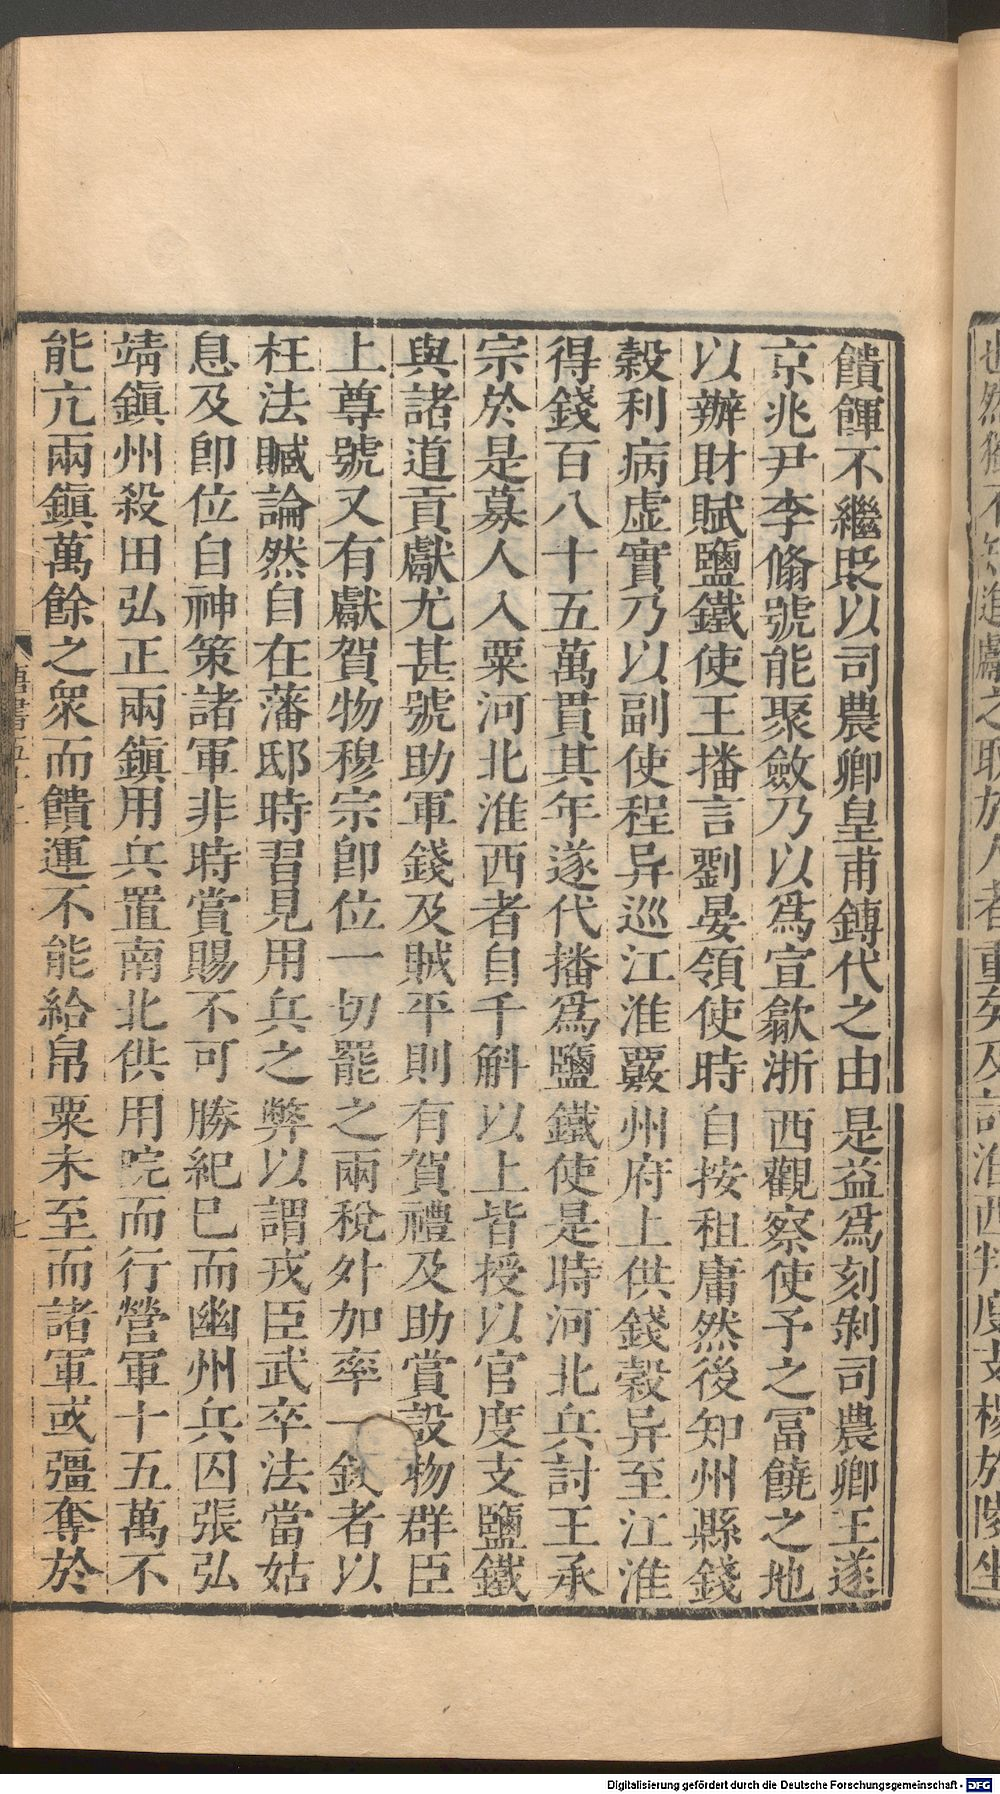 饋餫不繼貶以司農卿皇甫鎛代之由是益爲刻剝司農卿王遂
京兆尹李翛號能聚斂乃以爲宣歙浙西觀察使予之富饒之地
以辦財賦鹽鐵使王播言劉晏領使時自按租庸然後知州縣錢
穀利病虛實乃以副使程异巡江淮覈州府上供錢穀异至江淮
得錢百八十五萬貫其年遂代播爲鹽鐵使是時河北兵討王承
宗於是募人入粟河北淮西者自千斛以上皆授以官度支鹽鐵
與諸道貢獻尤甚號助軍錢及賊平則有賀禮及助賞設物群臣
上尊號又有獻賀物穆宗卽位一切罷之兩稅外加率一錢者以
枉法贓論然自在藩邸時習見用兵之弊以謂戎臣武卒法當姑
息及卽位自神策諸軍非時賞賜不可勝紀巳而幽州兵囚張弘
靖鎮州殺田弘正兩鎮用兵置南北供用院而行營軍十五萬不
能亢兩鎮萬餘之衆而饋運不能給帛粟未至而諸軍或彊奪於
唐書五十二
七
Digitalisierung gefördert durch die Deutsche Forschungsgemeinschaft - DFG